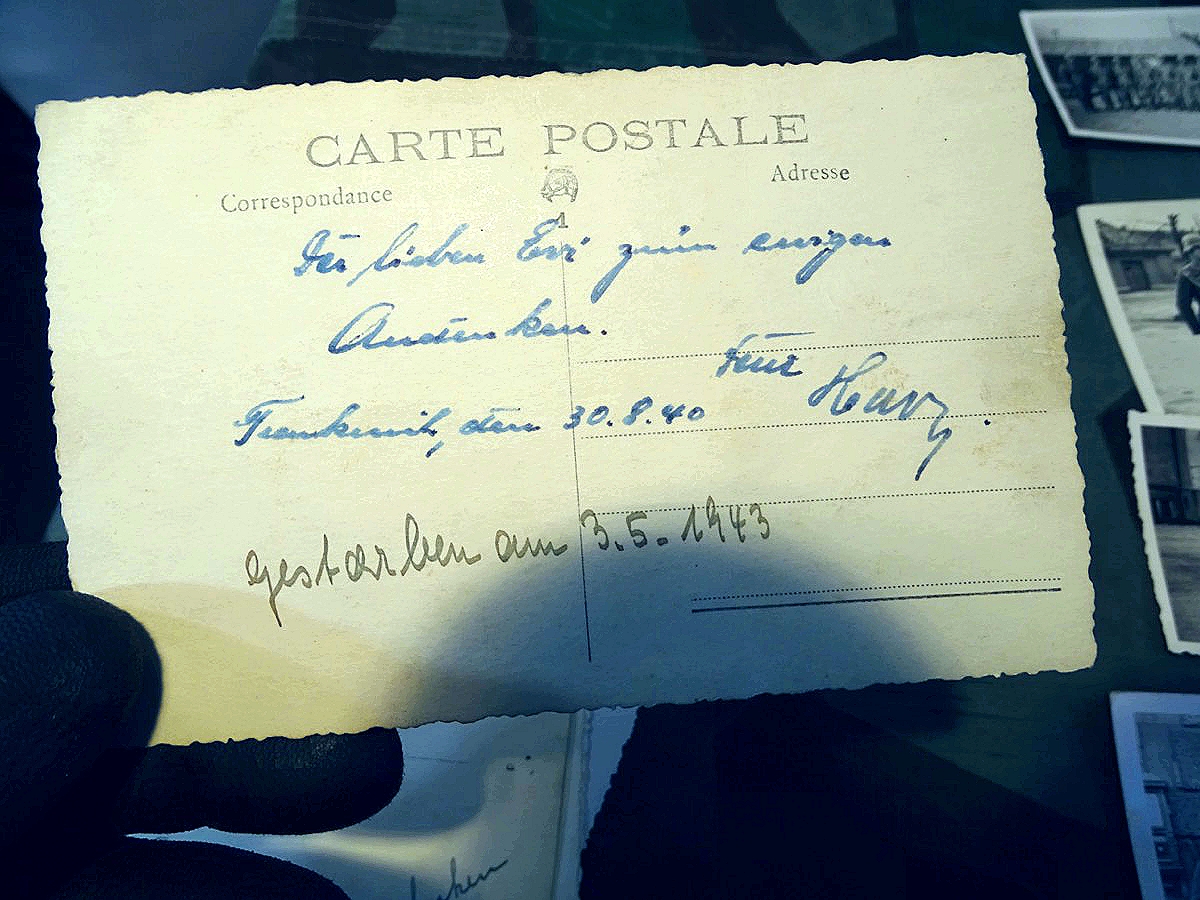 CARTE POSTALE
Correspondance
Adresse
1
Der lieben Evi zum ewigen
Andenken.
Frankreich, den 30.8.40
gestorben am 3.5.1943